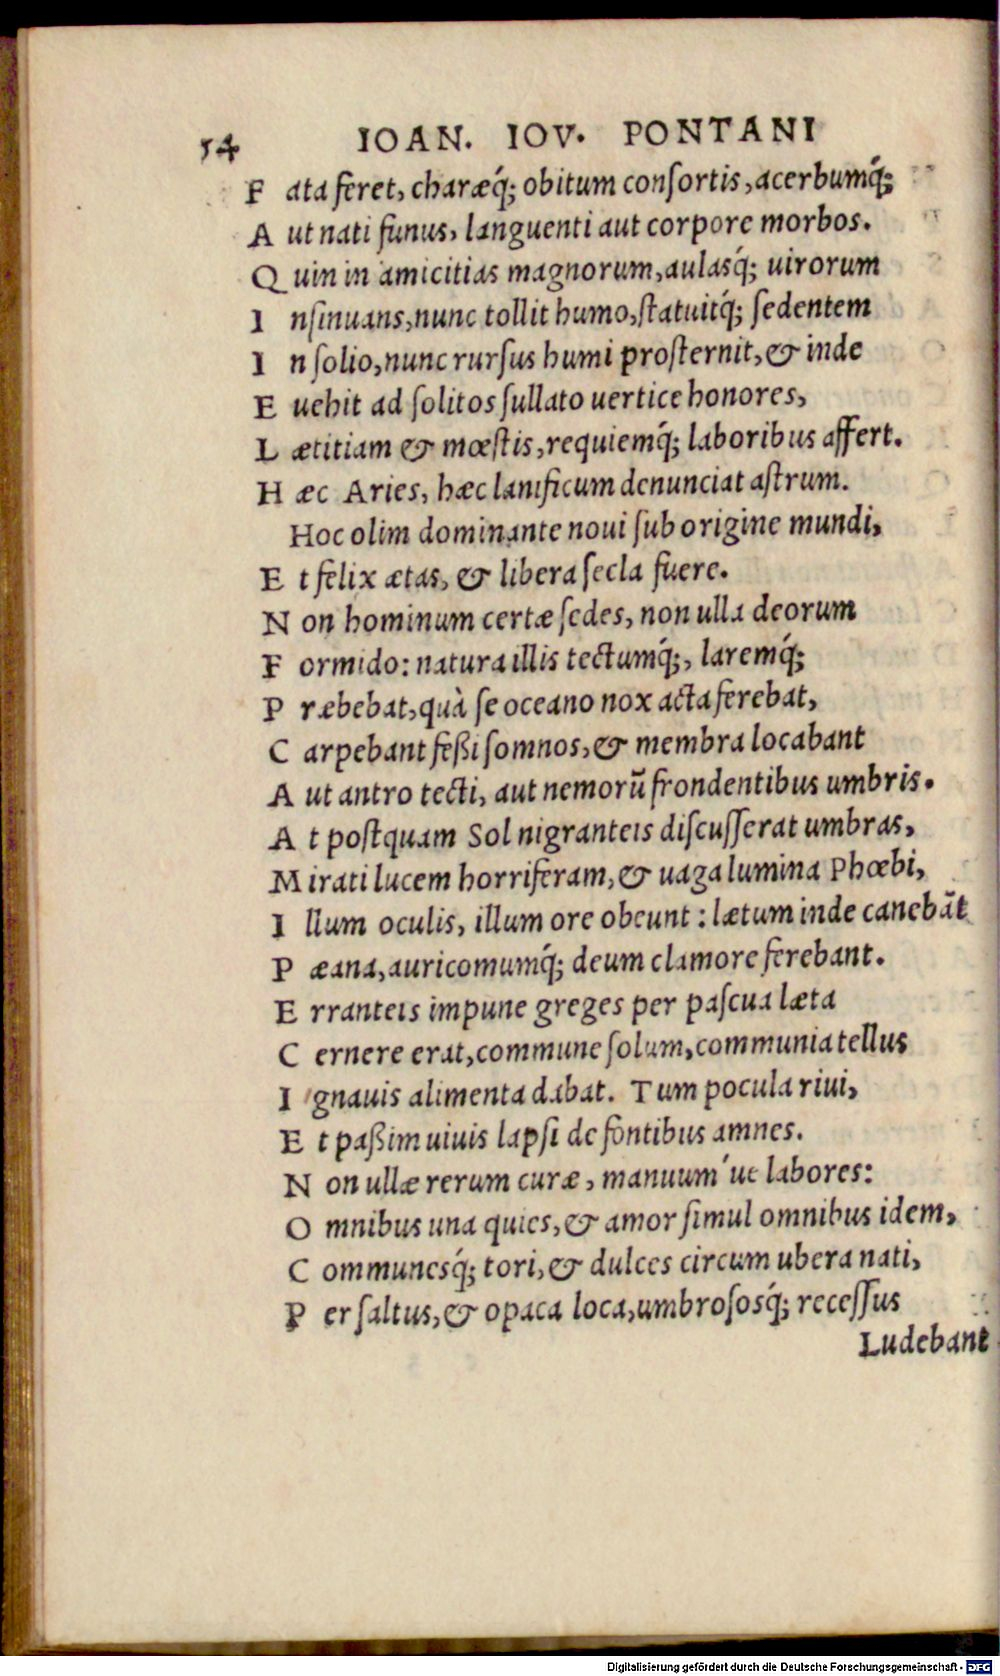 54 IOAN. IOV. PONTANI
F ata feret, charæq́; obitum conſortis, acerbumq́;
A ut nati funus, languenti aut corpore morbos.
Q uin in amicitias magnorum, aulasq́; uirorum
I nſinuans, nunc tollit humo, ſtatuitq́; ſedentem
I n ſolio, nunc rurſus humi proſternit, & inde
E uehit ad ſolitos ſullato uertice honores,
L ætitiam & mœſtis, requiemq́; laboribus affert.
H æc Aries, hæc lanificum denunciat aſtrum.
Hoc olim dominante noui ſub origine mundi,
E t felix ætas, & libera ſecla fuere.
N on hominum certæ ſedes, non ulla deorum
F ormido: natura illis tectumq́;, laremq́;
P ræbebat, quà ſe oceano nox acta ferebat,
C arpebant feßi ſomnos, & membra locabant
A ut antro tecti, aut nemorū frondentibus umbris.
A t poſtquam Sol nigranteis diſcuſſerat umbras,
M irati lucem horriferam, & uaga lumina Phœbi,
I llum oculis, illum ore obeunt: lætum inde canebāt
P æana, auricomumq́; deum clamore ferebant.
E rranteis impune greges per paſcua læta
C ernere erat, commune ſolum, communia tellus
I gnauis alimenta dabat. Tum pocula riui,
E t paßim uiuis lapſi de fontibus amnes.
N on ullæ rerum curæ, manuum'ue labores:
O mnibus una quies, & amor ſimul omnibus idem,
C ommunesq́; tori, & dulces circum ubera nati,
P er ſaltus, & opaca loca, umbroſosq́; receſſus
Ludebant
Digitalisierung gefördert durch die Deutsche Forschungsgemeinschaft - DFG